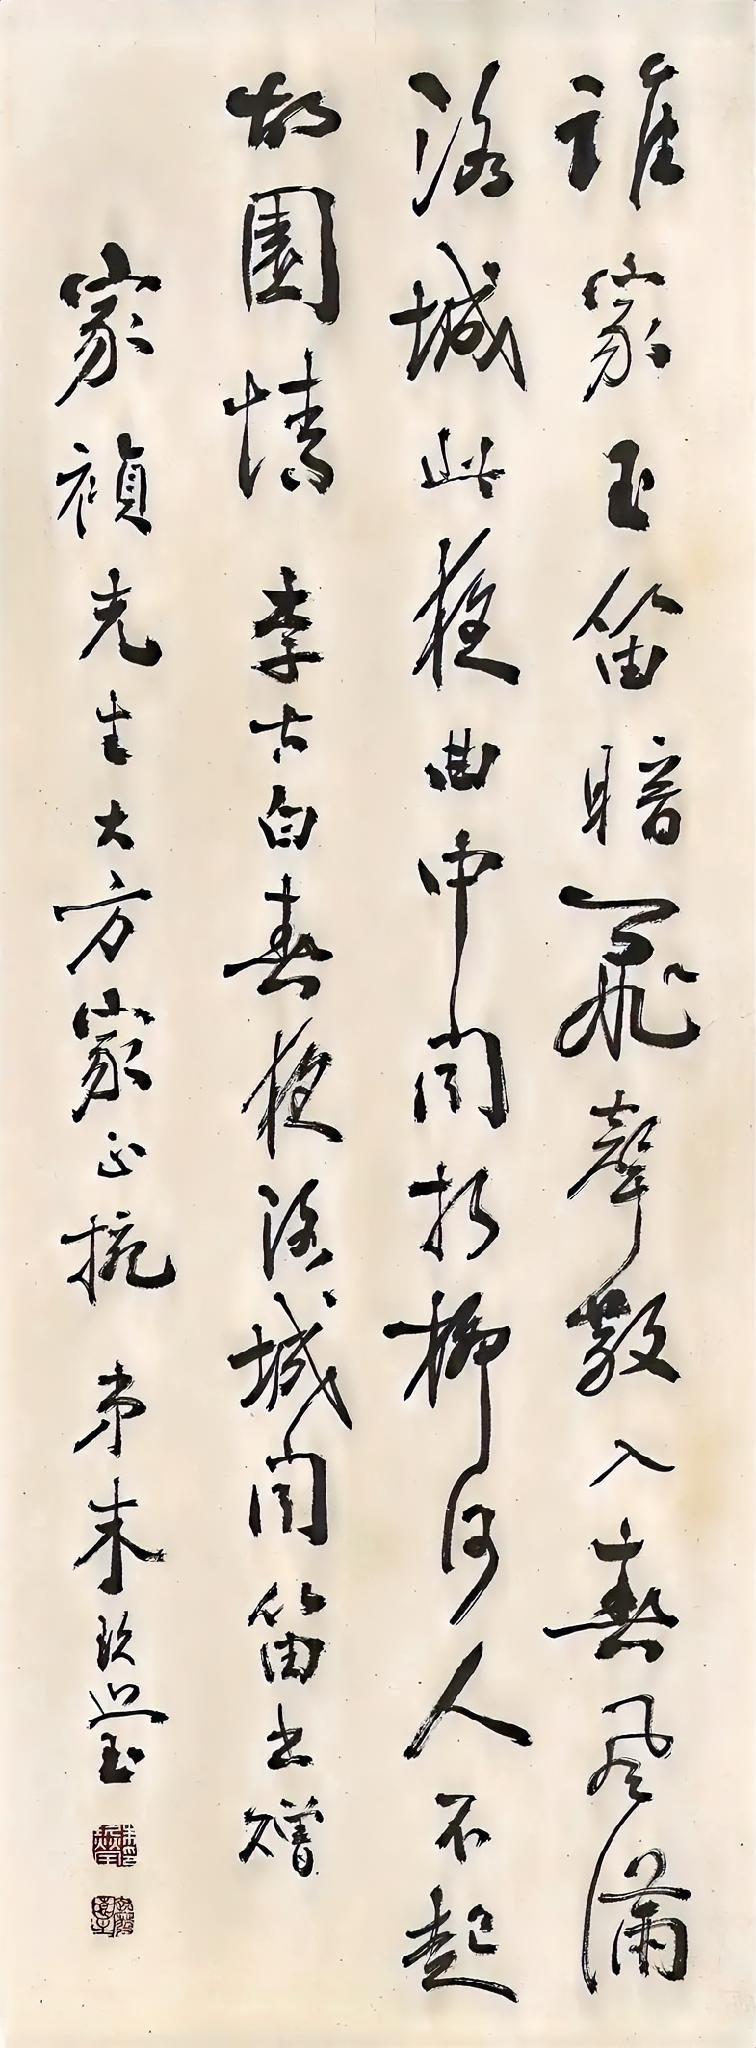 誰家玉笛暗飛聲散入春風滿
洛城此夜曲中聞折柳何人不起
故園情 李太白春夜洛城聞笛書贈
家禎先生大方家正 弟朱玖瑩